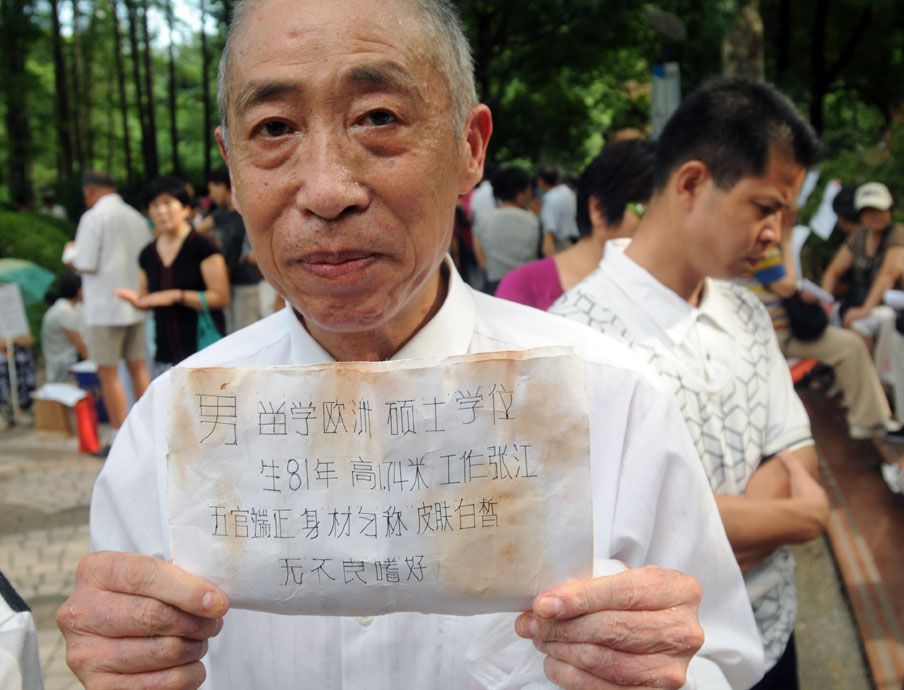 男 留学欧洲 硕士学位
生81年 高1.74米 工作张江
五官端正 身材匀称 皮肤白皙
无不良嗜好